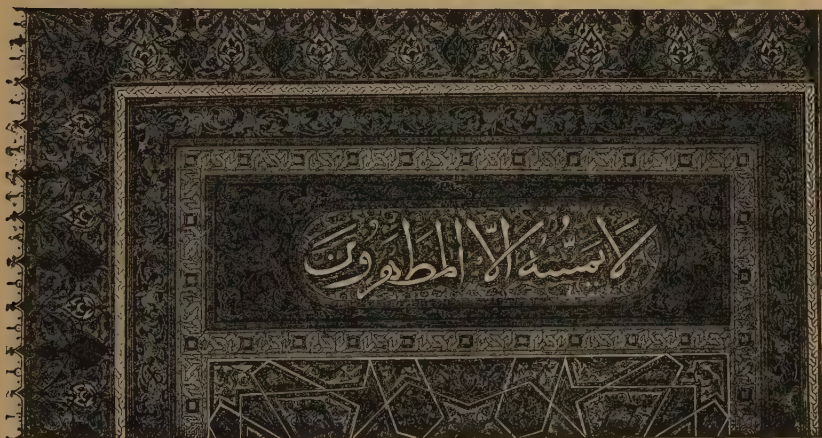 لَا يَمَسُّهُ اِلَّا الْمُطَهَّرُونَ